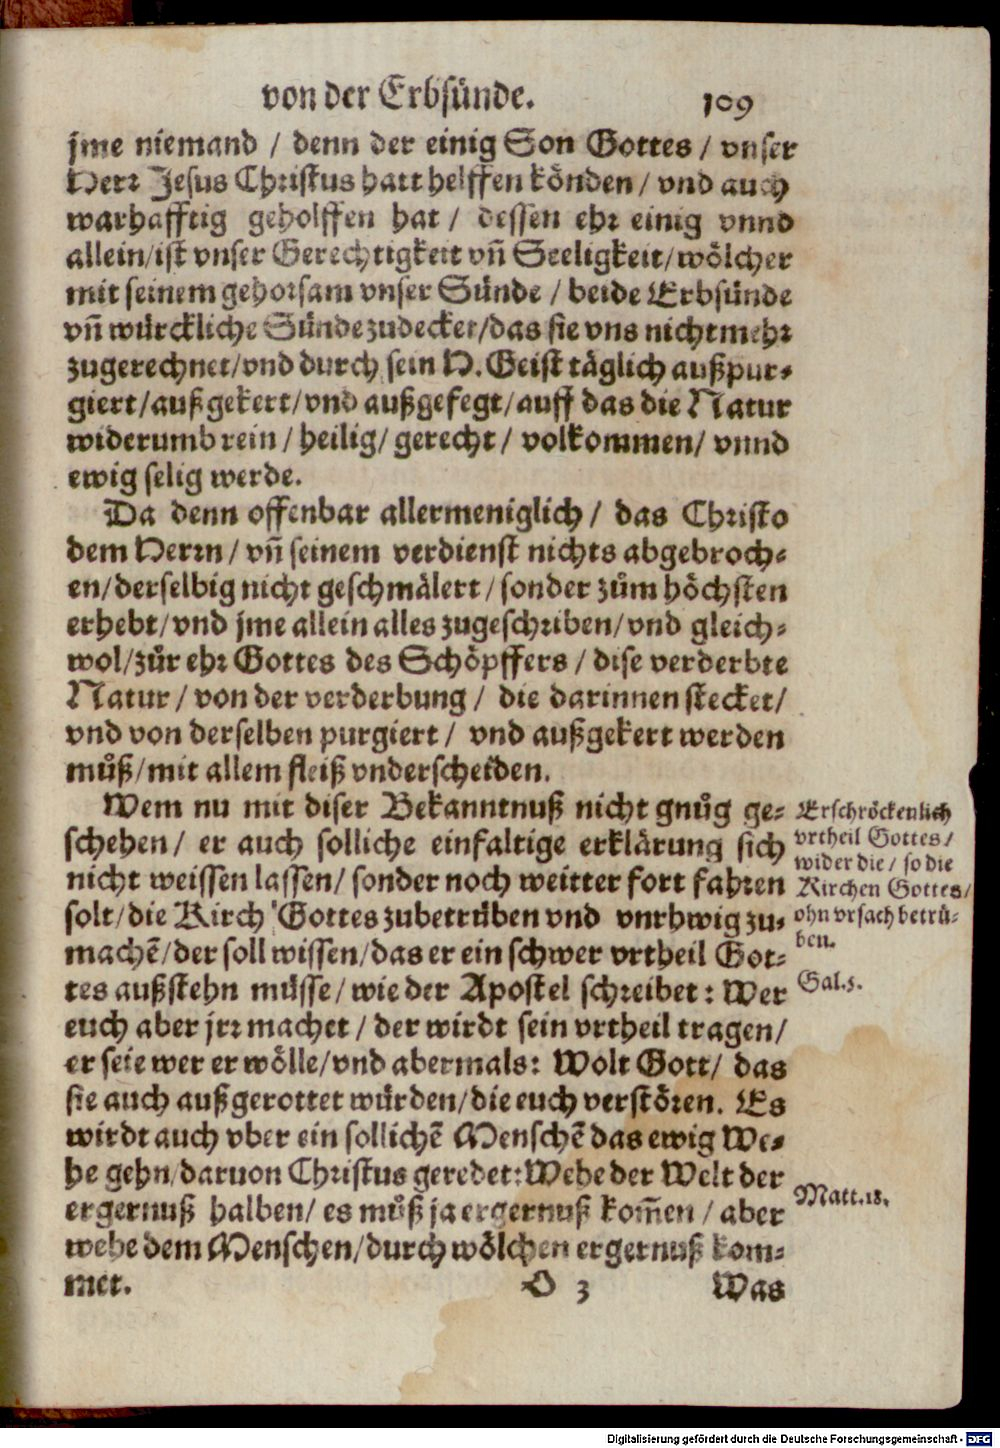 von der Erbsünde. 109
jme niemand / denn der einig Son Gottes / vnser
Herr Jesus Christus hatt helffen könden / vnd auch
warhafftig geholffen hat / dessen ehr einig vnnd
allein/ist vnser Gerechtigkeit vñ Seeligkeit/wölcher
mit seinem gehorsam vnser Sünde / beide Erbsünde
vñ würckliche Sünde zudecket/das sie vns nicht mehr
zugerechnet/vnd durch sein H. Geist täglich außpur-
giert/außgekert/vnd außgefegt/auff das die Natur
widerumb rein / heilig/ gerecht / volkommen/ vnnd
ewig selig werde.
Da denn offenbar allermeniglich / das Christo
dem Herrn / vñ seinem verdienst nichts abgebroch-
en/derselbig nicht geschmälert / sonder zům höchsten
erhebt/vnd jme allein alles zugeschriben/vnd gleich-
wol/zůr ehr Gottes des Schöpffers / dise verderbte
Natur / von der verderbung / die darinnen stecket/
vnd von derselben purgiert / vnd außgekert werden
můß/mit allem fleiß vnderscheiden.
Wem nu mit diser Bekanntnuß nicht gnůg ge-
schehen / er auch solliche einfaltige erklärung sich
nicht weissen lassen/ sonder noch weitter fort fahren
solt/die Kirch Gottes zubetrüben vnd vnrhwig zu-
machẽ/der soll wissen/das er ein schwer vrtheil Got-
tes außstehn müsse/wie der Apostel schreibet: Wer
euch aber jrr machet / der wirdt sein vrtheil tragen/
er seie wer er wölle/vnd abermals: Wolt Gott/ das
sie auch außgerottet würden/die euch verstören. Es
wirdt auch vber ein sollichẽ Menschẽ das ewig We-
he gehn/daruon Christus geredet: Wehe der Welt der
ergernuß halben/ es můß ja ergernuß kom̃en / aber
wehe dem Menschen/durch wölchen ergernuß kom-
met.
O 3 Was
Erschröckenlich
vrtheil Gottes/
wider die / so die
Kirchen Gottes/
ohn vrsach betrü-
ben.
Gal.5.
Matt.18.
Digitalisierung gefördert durch die Deutsche Forschungsgemeinschaft - DFG